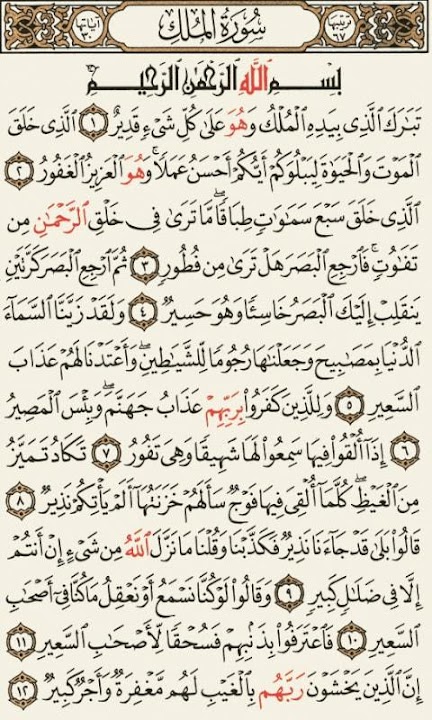 آياتها ٣٠ سُورَةُ المُلْكِ ترتيبها ٦٧
بِسْمِ اللَّهِ الرَّحْمَٰنِ الرَّحِيمِ
تَبَارَكَ ٱلَّذِي بِيَدِهِ ٱلْمُلْكُ وَهُوَ عَلَىٰ كُلِّ شَيْءٍ قَدِيرٌ ١ ٱلَّذِي خَلَقَ
ٱلْمَوْتَ وَٱلْحَيَوٰةَ لِيَبْلُوَكُمْ أَيُّكُمْ أَحْسَنُ عَمَلًا ۚ وَهُوَ ٱلْعَزِيزُ ٱلْغَفُورُ ٢
ٱلَّذِي خَلَقَ سَبْعَ سَمَٰوَٰتٍ طِبَاقًا ۖ مَّا تَرَىٰ فِي خَلْقِ ٱلرَّحْمَٰنِ مِن
تَفَٰوُتٍ ۖ فَٱرْجِعِ ٱلْبَصَرَ هَلْ تَرَىٰ مِن فُطُورٍ ٣ ثُمَّ ٱرْجِعِ ٱلْبَصَرَ كَرَّتَيْنِ
يَنقَلِبْ إِلَيْكَ ٱلْبَصَرُ خَاسِئًا وَهُوَ حَسِيرٌ ٤ وَلَقَدْ زَيَّنَّا ٱلسَّمَآءَ
ٱلدُّنْيَا بِمَصَٰبِيحَ وَجَعَلْنَٰهَا رُجُومًا لِّلشَّيَٰطِينِ ۖ وَأَعْتَدْنَا لَهُمْ عَذَابَ
ٱلسَّعِيرِ ٥ وَلِلَّذِينَ كَفَرُوا۟ بِرَبِّهِمْ عَذَابُ جَهَنَّمَ ۖ وَبِئْسَ ٱلْمَصِيرُ
٦ إِذَآ أُلْقُوا۟ فِيهَا سَمِعُوا۟ لَهَا شَهِيقًا وَهِيَ تَفُورُ ٧ تَكَادُ تَمَيَّزُ
مِنَ ٱلْغَيْظِ ۖ كُلَّمَآ أُلْقِيَ فِيهَا فَوْجٌ سَأَلَهُمْ خَزَنَتُهَآ أَلَمْ يَأْتِكُمْ نَذِيرٌ ٨
قَالُوا۟ بَلَىٰ قَدْ جَآءَنَا نَذِيرٌ فَكَذَّبْنَا وَقُلْنَا مَا نَزَّلَ ٱللَّهُ مِن شَيْءٍ إِنْ أَنتُمْ
إِلَّا فِي ضَلَٰلٍ كَبِيرٍ ٩ وَقَالُوا۟ لَوْ كُنَّا نَسْمَعُ أَوْ نَعْقِلُ مَا كُنَّا فِيٓ أَصْحَٰبِ
ٱلسَّعِيرِ ١٠ فَٱعْتَرَفُوا۟ بِذَنۢبِهِمْ فَسُحْقًا لِّأَصْحَٰبِ ٱلسَّعِيرِ ١١
إِنَّ ٱلَّذِينَ يَخْشَوْنَ رَبَّهُم بِٱلْغَيْبِ لَهُم مَّغْفِرَةٌ وَأَجْرٌ كَبِيرٌ ١٢